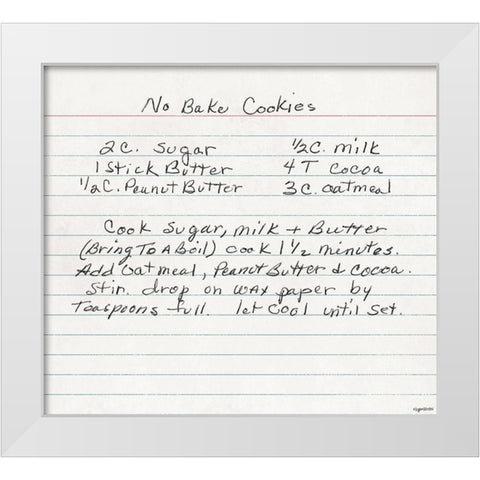 No Bake Cookies
2 C. Sugar ½ C. milk
1 Stick Butter 4 T cocoa
½ C. Peanut Butter 3 C. oatmeal
Cook Sugar, milk + Butter
(Bring To A Boil) cook 1½ minutes.
Add oatmeal, Peanut Butter & cocoa.
Stir. drop on wax paper by
Teaspoons full. let Cool until Set.